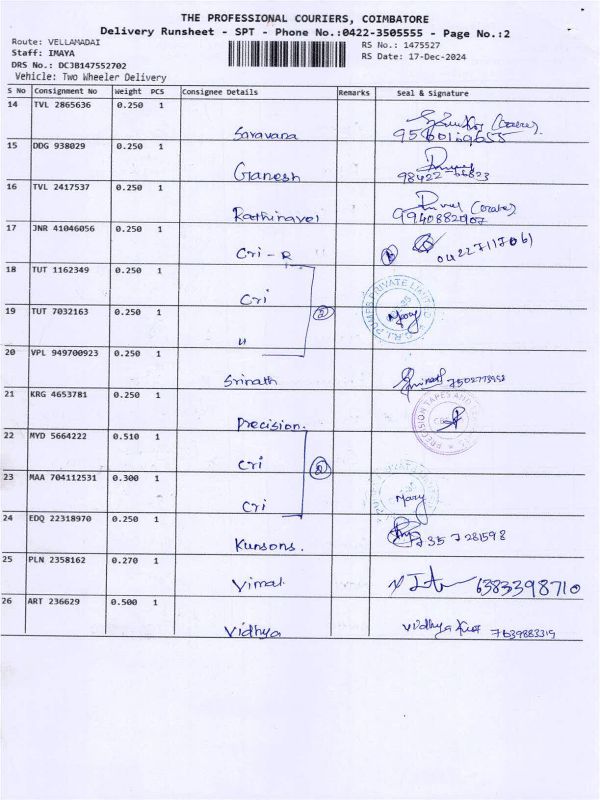 THE PROFESSIONAL COURIERS, COIMBATORE
Delivery Runsheet - SPT - Phone No.:0422-3505555 - Page No.:2
Route: VELLAMADAI
Staff: IMAYA
DRS No.: DCJB147552702
Vehicle: Two Wheeler Delivery
RS No.: 1475527
RS Date: 17-Dec-2024
S No Consignment No Weight PCS Consignee Details Remarks Seal & Signature
14 TVL 2865636 0.250 1 Saravana
15 DDG 938029 0.250 1 Ganesh
16 TVL 2417537 0.250 1 Rathinavel 9940882907
17 JNR 41046056 0.250 1 Cri - R 04227117061
18 TUT 1162349 0.250 1 Cri
19 TUT 7032163 0.250 1 " 2 Mary
20 VPL 949700923 0.250 1 Srinath
21 KRG 4653781 0.250 1 Precision. PRECISION TAPES AND
22 MYD 5664222 0.510 1 Cri
23 MAA 704112531 0.300 1 Cri 2 Mary
24 EDQ 22318970 0.250 1 Kunsons.
25 PLN 2358162 0.270 1 Vimal 6383398710
26 ART 236629 0.500 1 Vidhya Vidhya 7639883319